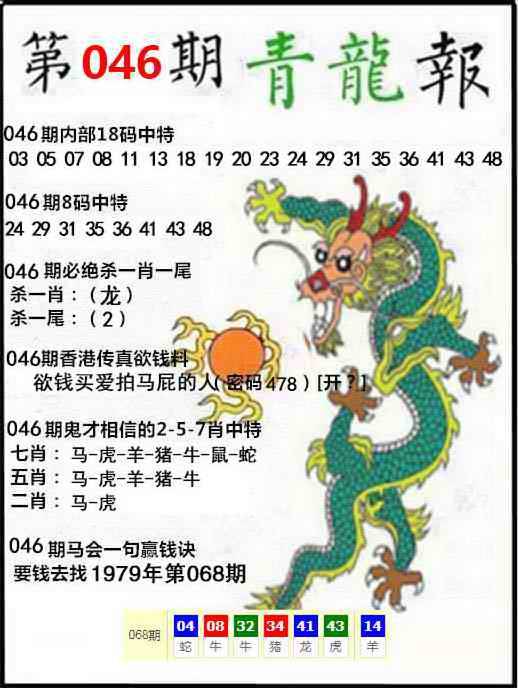 第046期 青龍報
046期内部18码中特
03 05 07 08 11 13 18 19 20 23 24 29 31 35 36 41 43 48
046期8码中特
24 29 31 35 36 41 43 48
046期必绝杀一肖一尾
杀一肖：（龙）
杀一尾：（2）
046期香港传真欲钱料
欲钱买爱拍马屁的人（密码478）[开？]
046期鬼才相信的2-5-7肖中特
七肖：马-虎-羊-猪-牛-鼠-蛇
五肖：马-虎-羊-猪-牛
二肖：马-虎
046期马会一句赢钱诀
要钱去找1979年第068期
068期 04 08 32 34 41 43 14
蛇 牛 牛 猪 龙 虎 羊